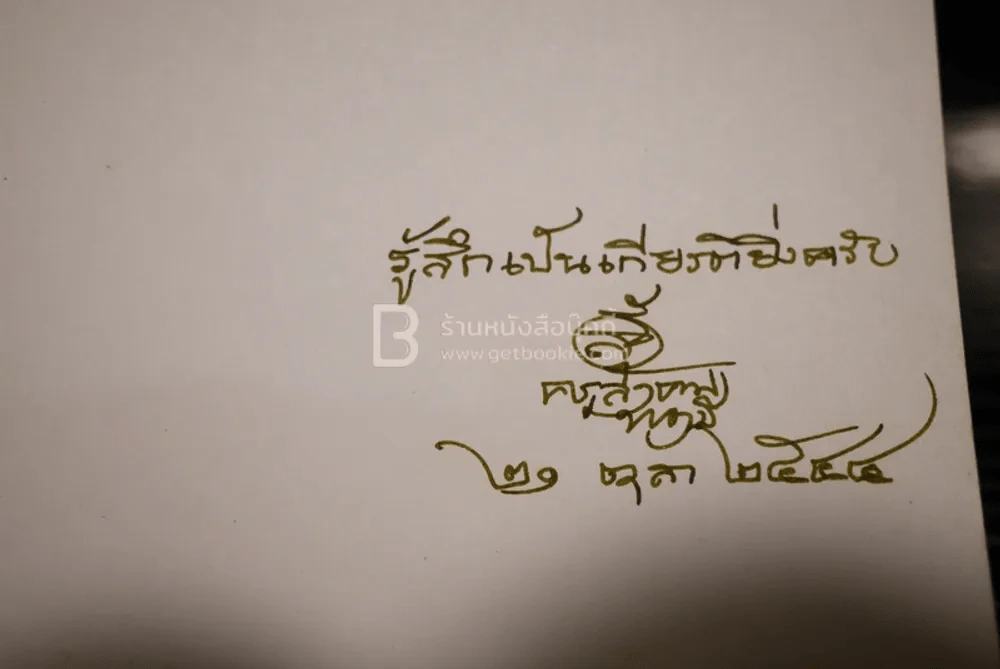 รู้สึกเป็นเกียรติยิ่งครับ
ร้านหนังสือบุ๊คกี้
www.getbookie.com
๒๑ ตุลา ๒๕๔๔